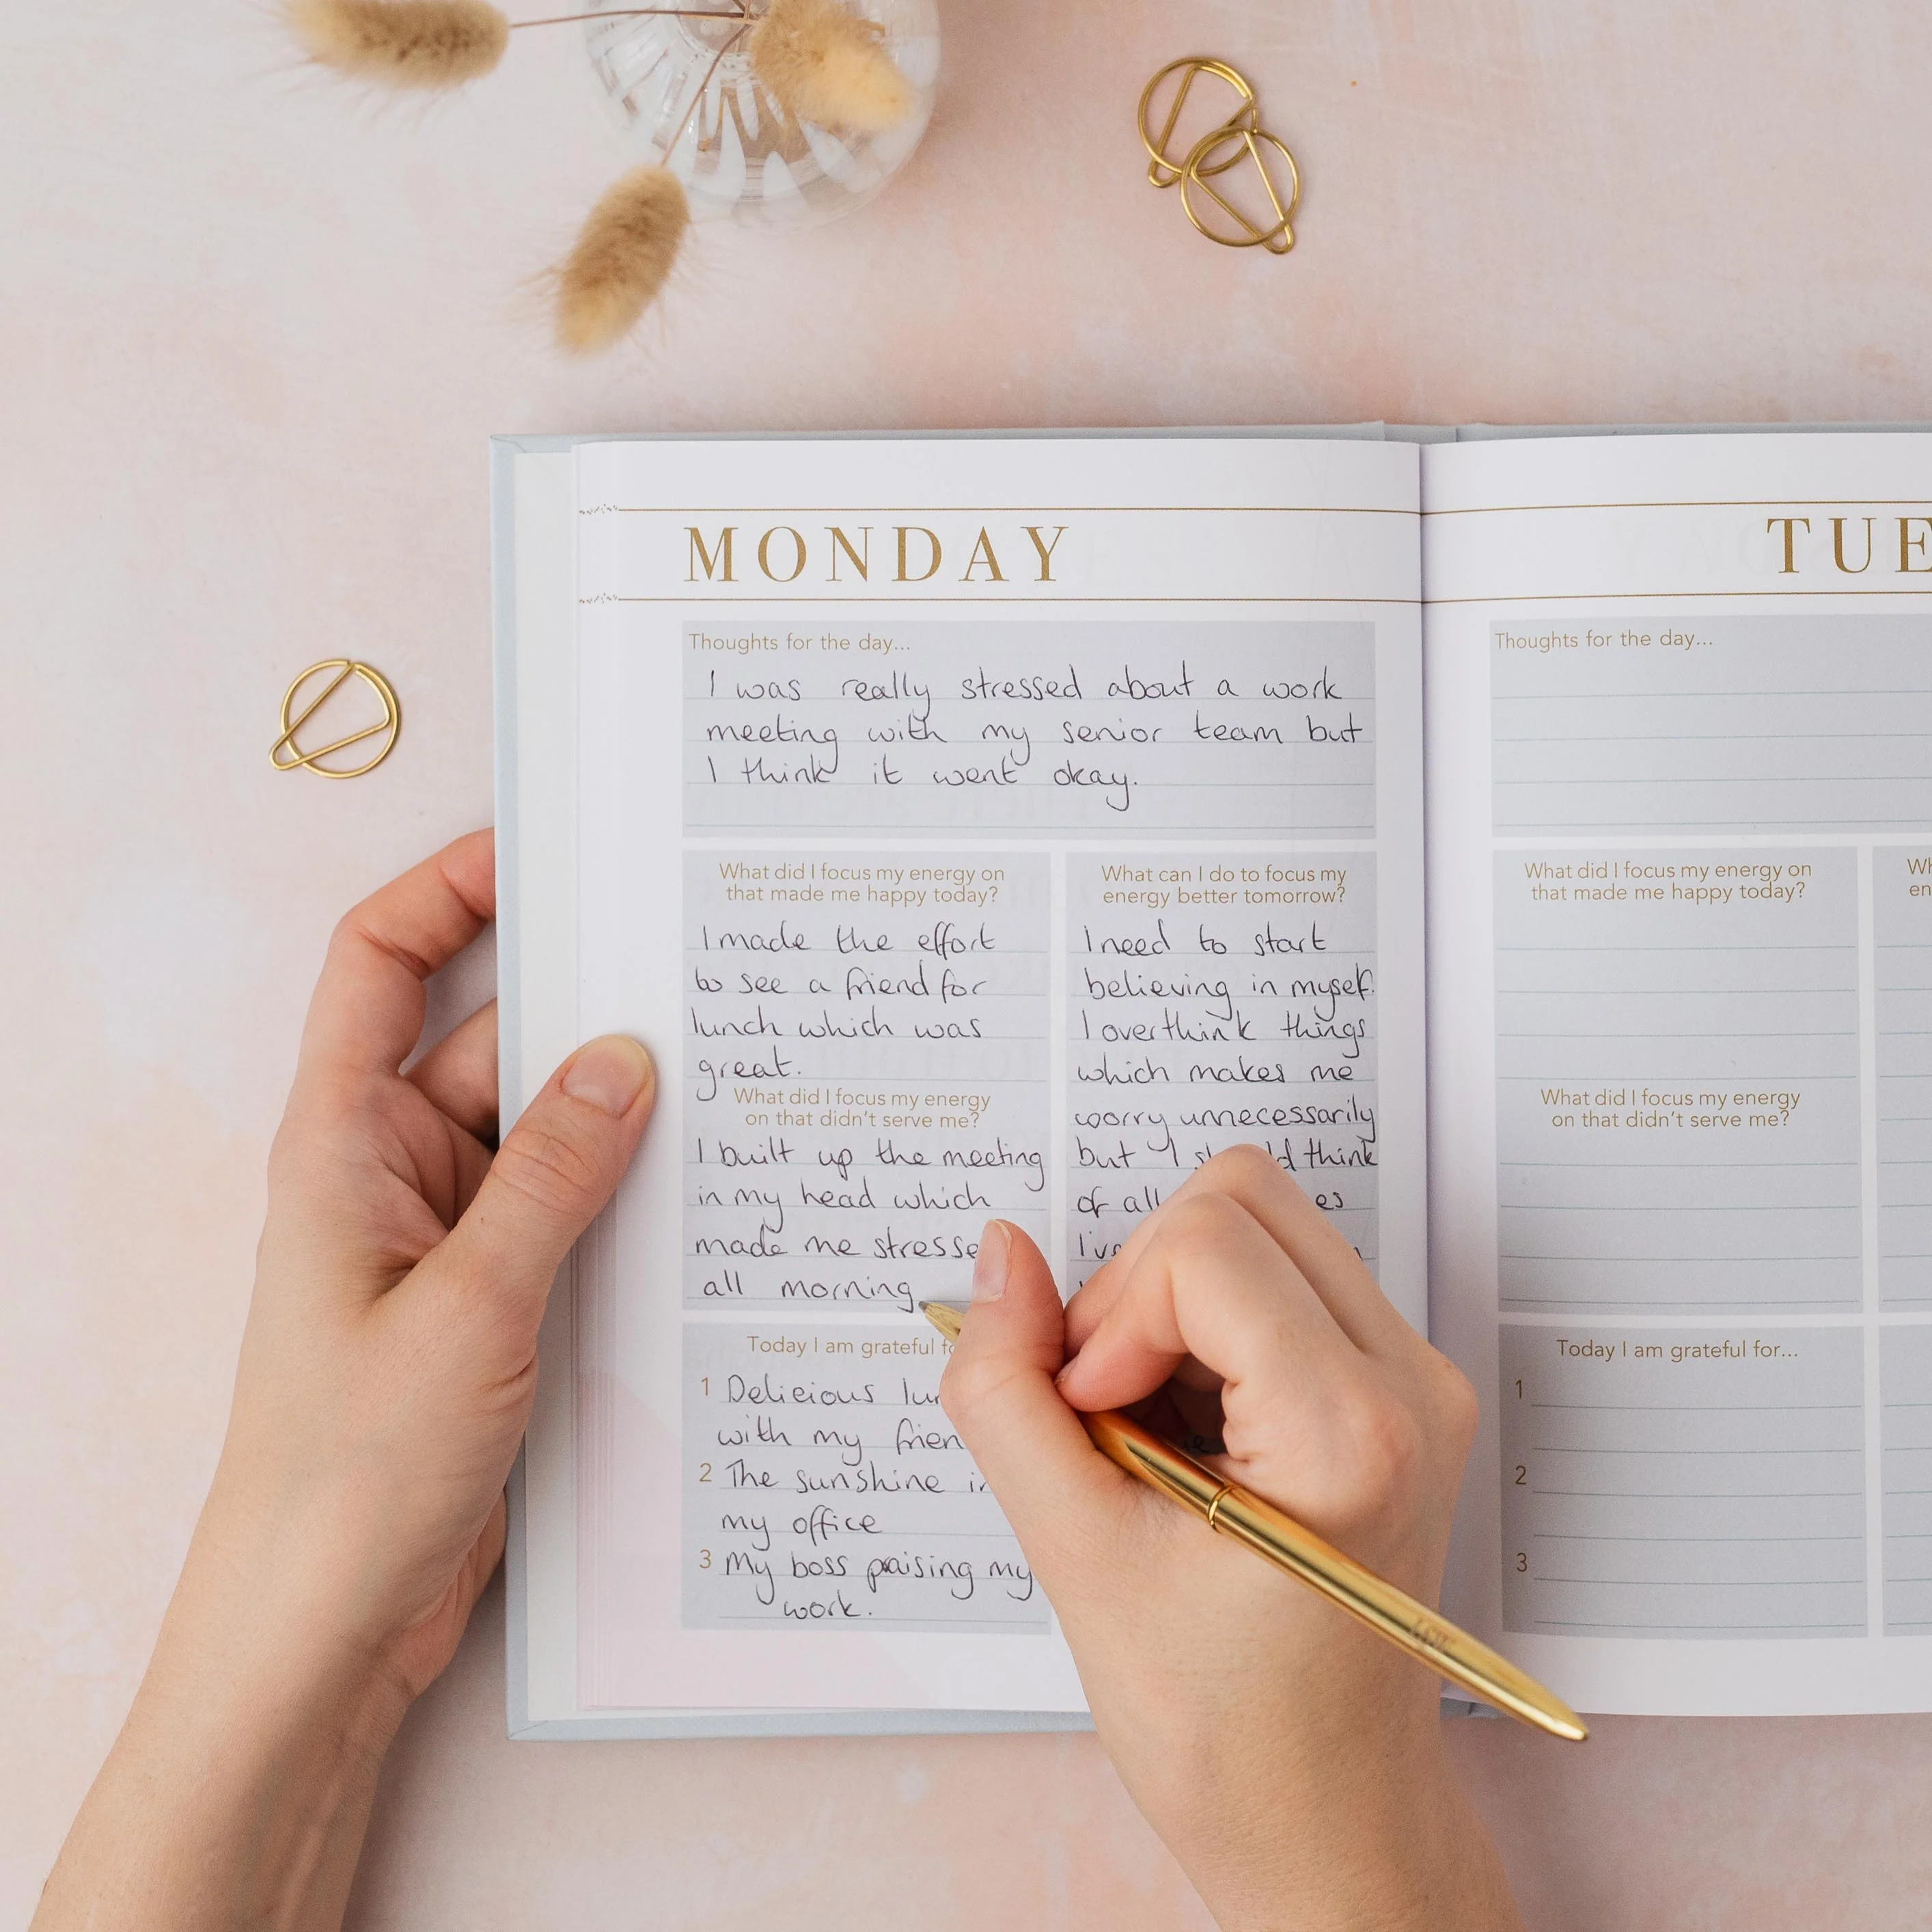 MONDAY
Thoughts for the day...
I was really stressed about a work
meeting with my senior team but
I think it went okay.
What did I focus my energy on
that made me happy today?
I made the effort
to see a friend for
lunch which was
great.
What did I focus my energy
on that didn't serve me?
I built up the meeting
in my head which
made me
all morning
What can I do to focus my
energy better tomorrow?
I need to start
believing in myself.
I overthink things
which makes me
worry unnecessarily
but I think
of all
Today I am grateful
1 Delicious
with my
2 The sunshine
my office
3 My boss praising my
work.
Thoughts for the day...
What did I focus my energy on
that made me happy today?
What did I focus my energy
on that didn't serve me?
Today I am grateful for...
1
2
3